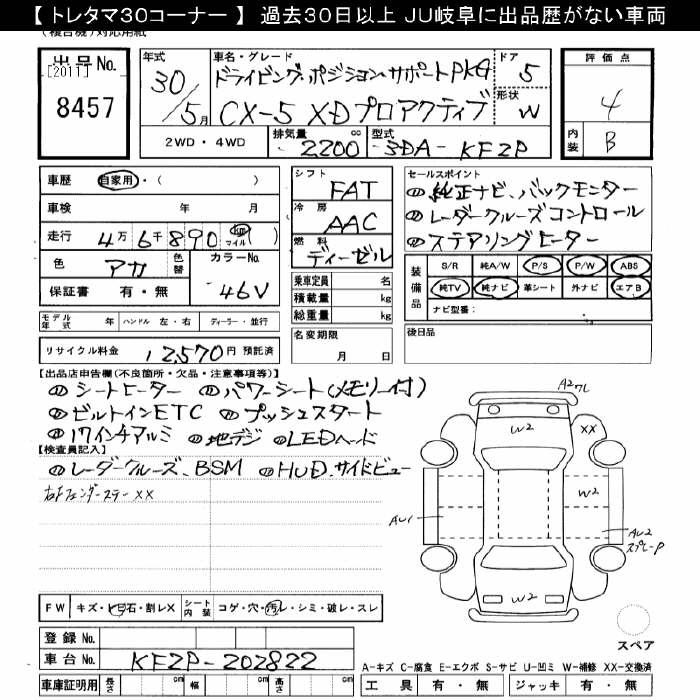 【 トレタマ30コーナー 】 過去30日以上 JU岐阜に出品歴がない車両
(複合機)対応用紙
出品No.
[2011]
8457
年式
30/5月
車名・グレード
ドライビング・ポジションサポートPKG
CX-5 XDプロアクティブ
ドア
5
形状
W
2WD・4WD
排気量
2200
cc
型式
3DA-KF2P
評価点
4
内装
B
車歴
自家用・( )
車検 年 月
走行
4万6千890
km
マイル
( )
色
アカ
色替
カラーNo.
46V
保証書 有・無
モデル年式 年
ハンドル 左・右
ディーラー・並行
リサイクル料金
12,570円 預託済
シフト
FAT
冷房
AAC
燃料
ディーゼル
乗車定員 名
積載量 kg
総重量 kg
名変期限
月 日
セールスポイント
純正ナビ、バックモニター
レーダークルーズコントロール
ステアリングヒーター
装備品
S/R 純A/W P/S P/W ABS
純TV 純ナビ 革シート 外ナビ エアB
ナビ型番:
後日品
【出品店申告欄(不良箇所・欠品・注意事項等)】
シートヒーター パワーシート(メモリー付)
ビルトインETC プッシュスタート
17インチアルミ 地デジ LEDヘッド
【検査員記入】
レーダークルーズ、BSM HUD、サイドビュー
右Fフェンダーステー××
A27L
W2
××
W2
AU1
AU2
スプレーP
W2
FW
キズ・ヒ石・割レX
シート内装
コゲ・穴・汚レ・シミ・破レ・スレ
スペア
登録No.
車台No.
KF2P-202822
A-キズ C-腐食 E-エクボ S-サビ U-凹ミ W-補修 XX-交換済
車庫証明用
長さ cm
幅 cm
高さ cm
工具 有・無
ジャッキ 有・無